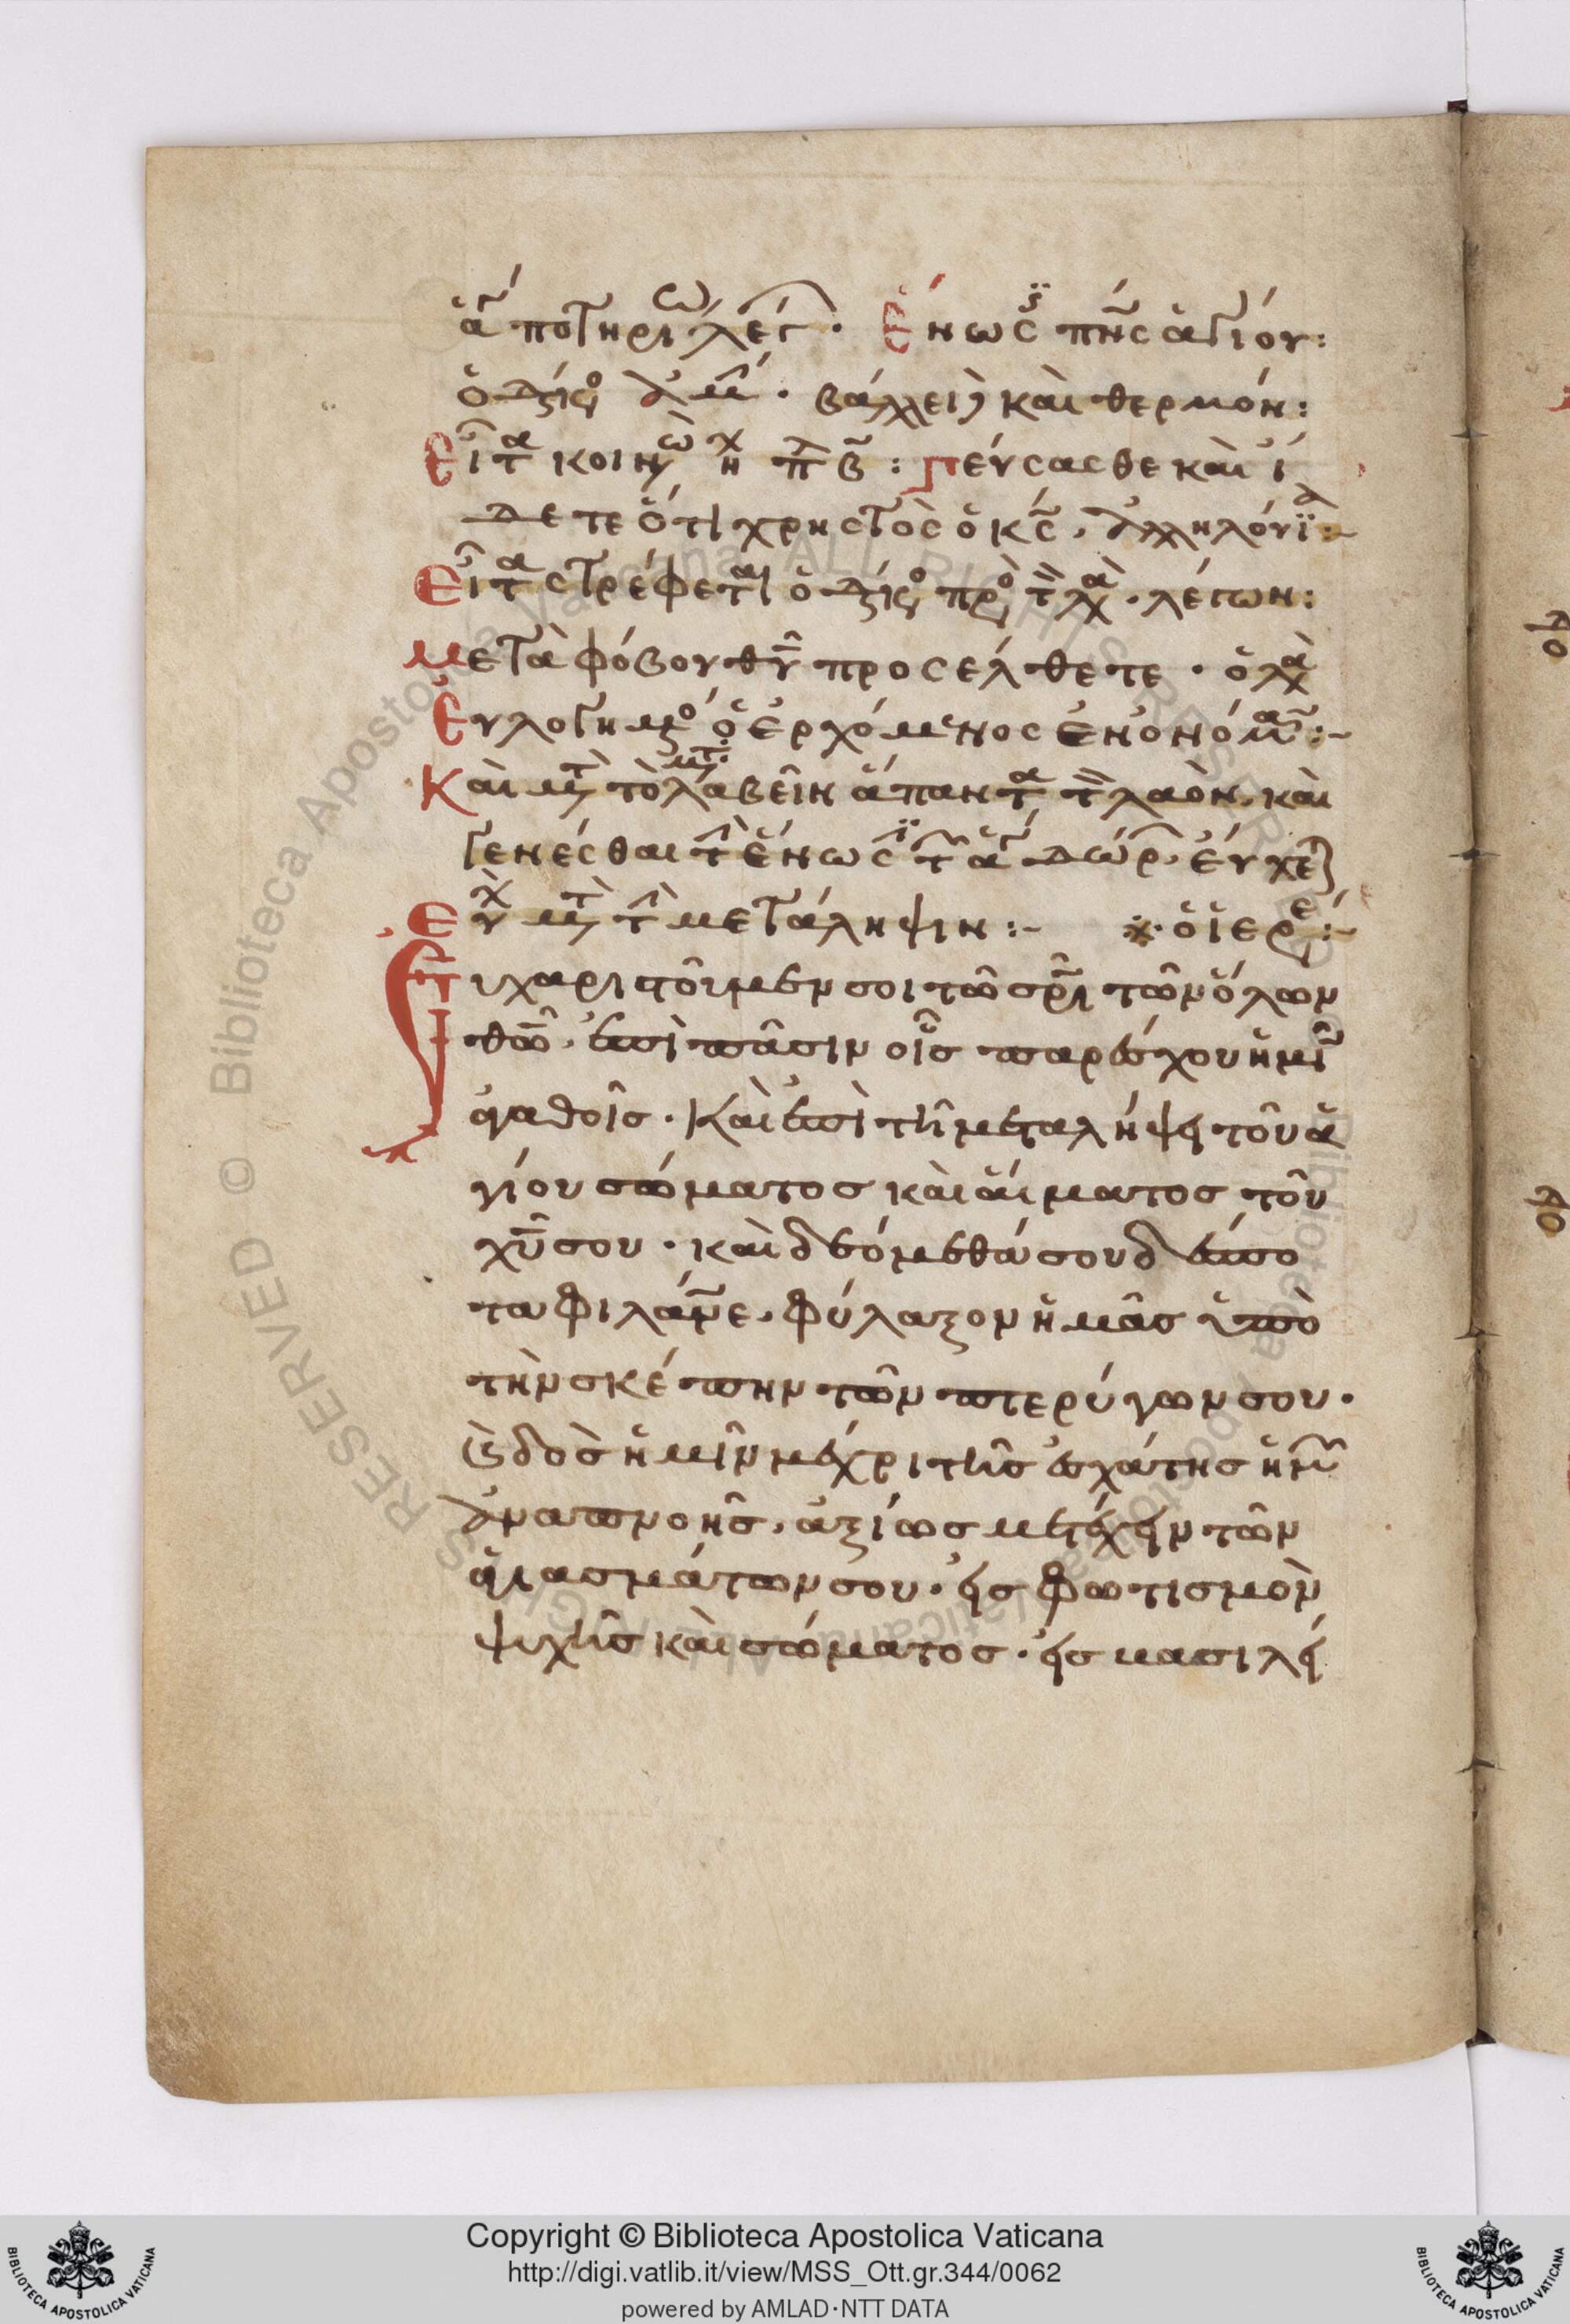 ἁγ ποτηρίω λέγ · Ἕνωσ πνς ἁγίου:
ὁ διάκο ἀμ · βάλλει καὶ θερμόν:
Εἶτα κοινω : Γεύσασθε καὶ ἴ
δετε ὅτι χρηστὸς ὁ κς, ἀλληλούϊα:~
Εἶτα στρέφεται ὁ διάκο πρὸ τ λα · λέγων:
Μετὰ φόβου θυ προσέλθετε · ὁ λα
Ευλογημο ὁ ἐρχόμενος ἐν ὀνόμα:~
Καὶ μτ τὸ μτ λαβεῖν ἅπαντα τ λαὸν, καὶ
γενέσθαι τ ἕνωσ τ ἁγ δώρ, εὐχε
Ευχ μτ τ μετάληψιν:~ ὁ ἱερε:~
Ευχαριστοῦμεν σοι τῶ σρι τῶν ὅλων
θω, ἐπὶ πᾶσιν οἷς παρέσχου ἡμῖ
ἀγαθοῖς · Καὶ ἐπὶ τῆ μεταλήψει τοῦ ἁ
γίου σώματος καὶ αἵματος τοῦ
χυ σου · καὶ δεόμεθά σου δέσπο
τα φιλάνε, φύλαξον ἡμᾶς ὑπὸ
τὴν σκέπην τῶν πτερύγων σου ·
δὸς ἡμῖν μέχρι τῆς ἐσχάτης ἡμ
ἀναπνοῆς, ἀξίως μετέχειν τῶν
ἁγιασμάτων σου · εἰς φωτισμὸν
ψυχῆς καὶ σώματος · εἰς βασιλεί
Copyright © Biblioteca Apostolica Vaticana
http://digi.vatlib.it/view/MSS_Ott.gr.344/0062
powered by AMLAD·NTT DATA
BIBLIOTECA APOSTOLICA VATICANA
BIBLIOTECA APOSTOLICA VATICANA